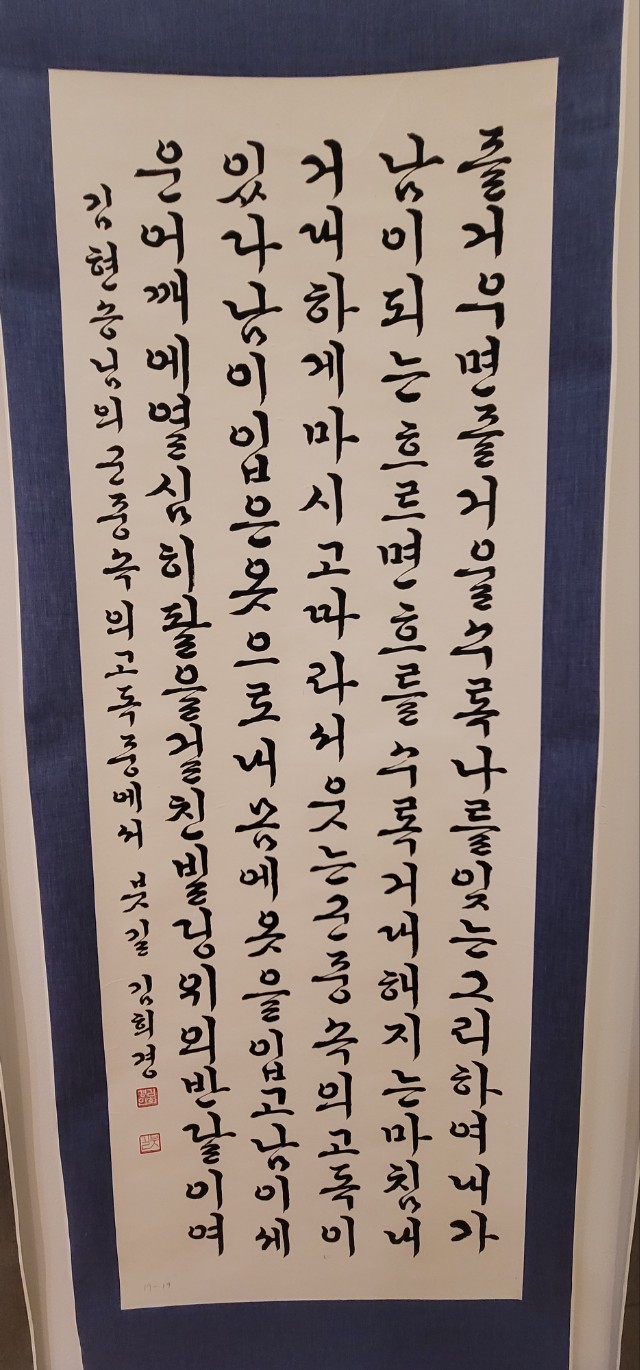 즐거우면즐거울수록나를잊는그리하여내가
남이되는흐르면흐를수록거대해지는마침내
거대하게마시고따라서웃는군중속의고독이
있다남이입은옷으로내몸에옷을입고남이세
운어깨에열심히팔을걸친빌딩위의반달이여
김현승님의군중속의고독중에서 붓길 김희경
17-19